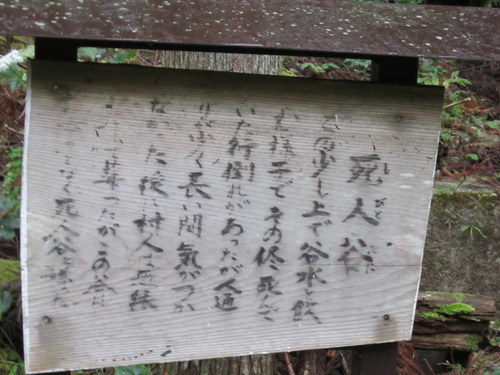 死人谷
しびとだに
この少し上で谷水を飲
む様子でその侭死んで
いた行倒れがあったが人通
りが少く長い間気がつか
なかった後で村人は無縁
葬ったがこの谷は
となく死人谷と